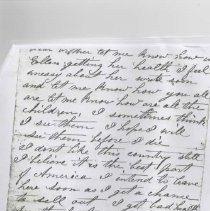 mother let me know how
Ellen getting her health I feel
uneasy about her wrote soon
and let me know how you all
are let me know how are all the
children I sometimes think
I see them I hope I will
see them before I die
I dont like this country still
I believe it is the best part
of America I intend to leave
here soon as I get a chance
to sell out I got bad health